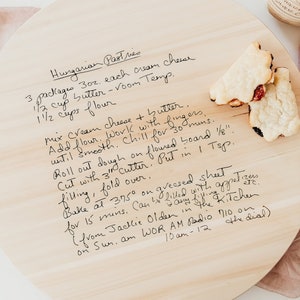 Hungarian Pastries
3 packages 3oz. each cream cheese
1/2 cup butter - room Temp.
1 1/2 cups flour
mix cream cheese & butter.
Add flour. Work with fingers
until smooth. Chill for 30 mins.
Roll out dough on floured board 1/8".
Cut with 3" cutter. Put in 1 Tsp.
filling, fold over.
Bake at 375° on greased sheet
for 15 mins. Can be filled with appetizers
& any filling etc.
(from Jackie Olden in the Kitchen
on Sun. am WOR AM Radio 710 on
10am-12 the dial)